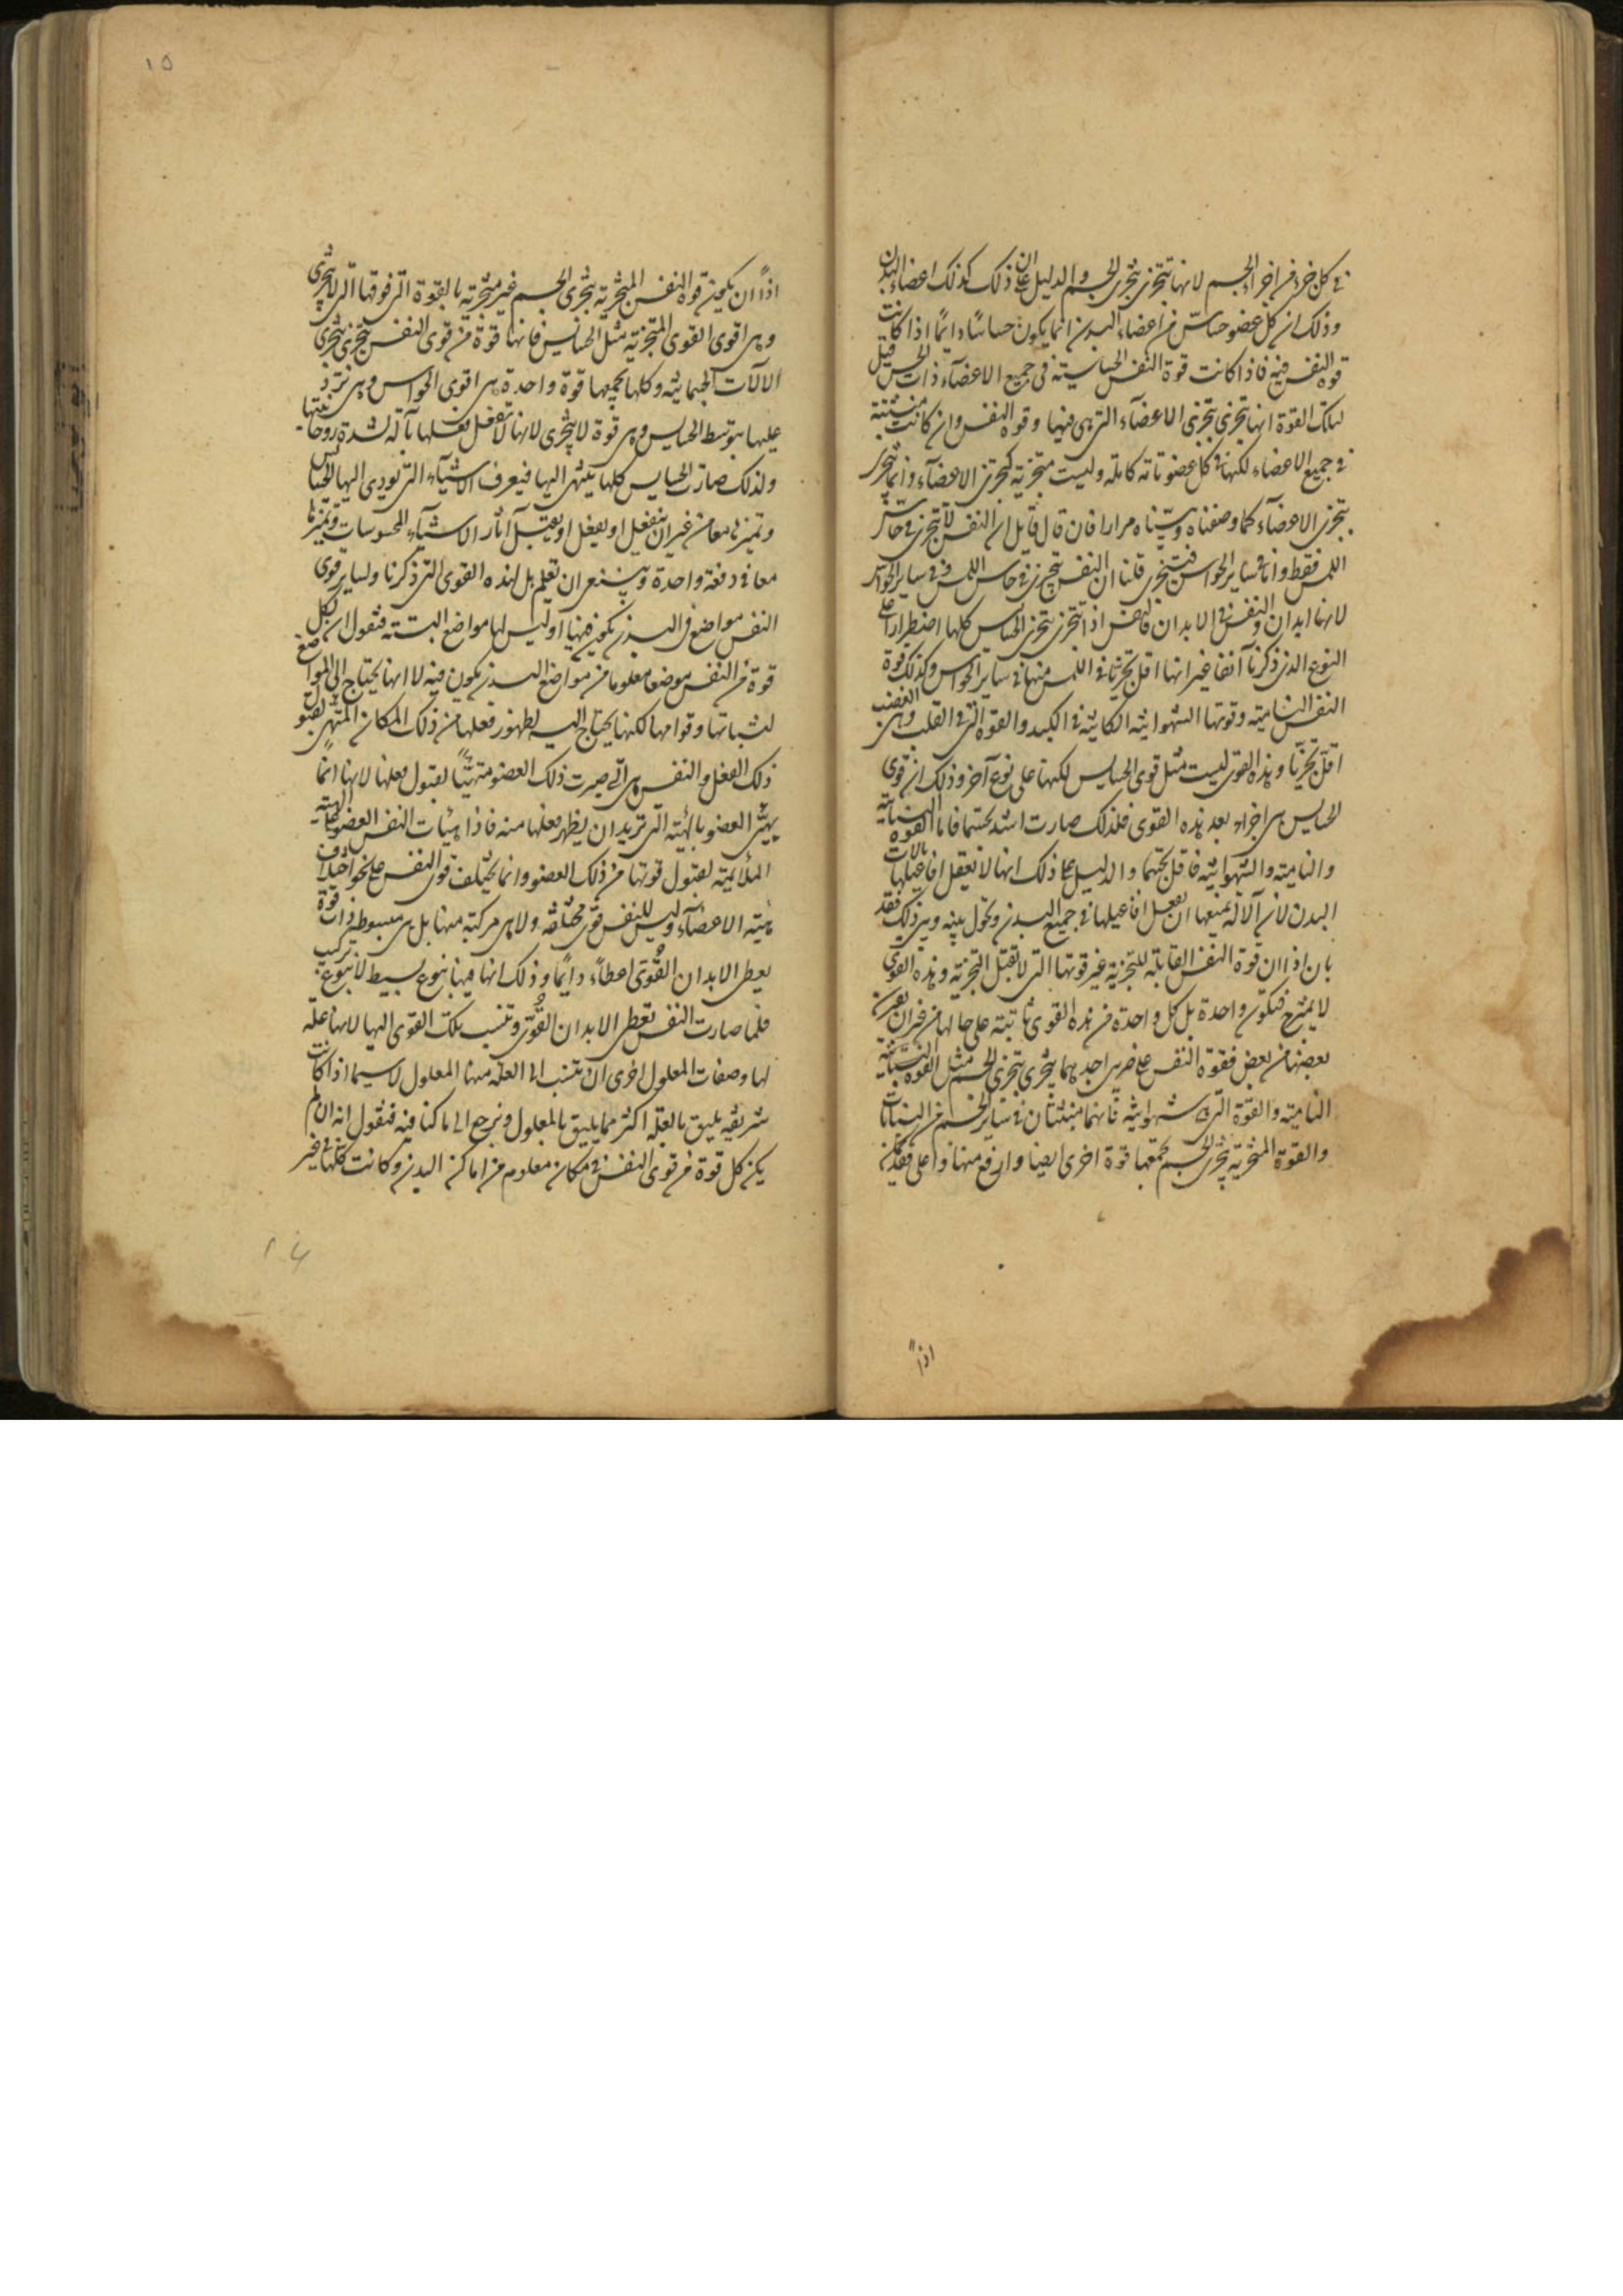 في كل جزء من اجزاء الجسم لانها تتجزى بتجزى الجسم والدليل على ذلك ان كذلك اعضاء البدن
وذلك ان كل عضو حساس من اعضاء البدن انما يكون حساسا دائما اذا كانت
قوة النفس فيه فاذا كانت قوة النفس الحساسية في جميع الاعضاء ذات الحس قيل
لتلك القوة انها تتجزى بتجزى الاعضاء التي هي فيها وقوة النفس وان كانت منبثة
في جميع الاعضاء لكنها في كل عضو تامة كاملة وليست متجزية كتجزى الاعضاء وانما تتجزى
بتجزى الاعضاء كما وصفناه وبيناه مرارا فان قال قايل ان النفس لا تتجزى في حاسة
اللمس فقط واما في ساير الحواس فتتجزى قلنا ان النفس تتجزى في حاس اللمس وفي ساير الحواس
لانها ابدان والنفس في الابدان فالنفس اذا تتجزى بتجزى الحساس كلها اضطرارا على
النوع الذي ذكرنا آنفا غير انها اقل تجزيا في اللمس منها في ساير الحواس وكذلك قوة
النفس النامية وقوتها الشهوانية الكاينة في الكبد والقوة التي في القلب وهي الغضب
اقل تجزيا وهذه القوى ليست مثل قوى الحسايس لكنها على نوع آخر وذلك ان قوى
الحسايس هي اجزاء بعد هذه القوى فلذلك صارت اشد تجسما فاما القوة النباتية
والنامية والشهوانية فاقل تجسما والدليل على ذلك انها لا تفعل افاعيلها بالات
البدن لان آلاته تمنعها ان تفعل افاعيلها في جميع البدن وتحول بينه وبين ذلك فقد
بان اذا ان قوة النفس القابلة للتجزية غير قوتها التي لا تقبل التجزية وهذه القوى
لا يمتزج فتكون واحدة بل كل واحدة من هذه القوى ثابتة على حالها من غير ان يفرق
بعضها من بعض فقوة النفس على ضربين احدهما يتجزى بتجزى الجسم مثل القوة النباتية
النامية والقوة التي هي شهوانية فانهما منبثتان في ساير الجسم من النبات
والقوة المتجزية بتجزى الجسم تجمعها قوة اخرى ايضا وارفع منها واعلى فقد يمكن
اذاً
١٥
اذاً ان تكون قوة النفس المتجزية بتجزى الجسم غير متجزية بالقوة التي فوقها التي لا تتجزى
وهي اقوى القوى المتجزية مثل الحسايس فانها قوة من قوى النفس تتجزى بتجزى
الالات الجسمانية وكلها تجمعها قوة واحدة هي اقوى الحواس وهي ترد
عليها بتوسط الحسايس وهي قوة لا تتجزى لانها لا تفعل فعلها بآلة لشدة روحانيتها
ولذلك صارت الحسايس كلها تنتهي اليها فيعرف الاشياء التي تودى اليها الحسايس
وتميزها معا من غير ان ينفعل او يفعل او يقبل آثار الاشياء المحسوسات وتميزها
معا في دفعة واحدة وينبغي ان نعلم هل لهذه القوى التي ذكرنا ولساير قوى
النفس مواضع في البدن تكون فيها او ليس لها مواضع البتة فنقول ان لكل
قوة من النفس موضعا معلوما من مواضع البدن يكون فيه لا انها يحتاج الى المواضع
لثباتها وقوامها لكنها يحتاج اليه لظهور فعلها من ذلك المكان المتهيئ لقبول
ذلك الفعل والنفس هي التي صيرت ذلك العضو متهيئاً لقبول فعلها لانها انما
يهيئ العضو بالهيئة التي تريد ان يظهر فعلها منه فاذا هيات النفس العضو على الهيئة
الملائمة لقبول قوتها من ذلك العضو وانما يختلف قوى النفس على نحو اختلاف
هيئة الاعضاء وليس للنفس قوى مختلفة ولا هي مركبة منها بل هي مبسوطة ذات قوة
يعطي الابدان القوى اعطاء دايما وذلك انها فيها بنوع بسيط لا بنوع تركيب
فلما صارت النفس تعطي الابدان القوى وتنسب تلك القوى اليها لانها علة
لها وصفات المعلول احرى ان تنسب الى العلة منها المعلول لا سيما اذا كانت
شريفة يليق بالعلة اكثر مما يليق بالمعلول ونرجع الى ما كنا فيه فنقول انه ان لم
يكن كل قوة من قوى النفس في مكان معلوم من اماكن البدن وكانت كلها في غير